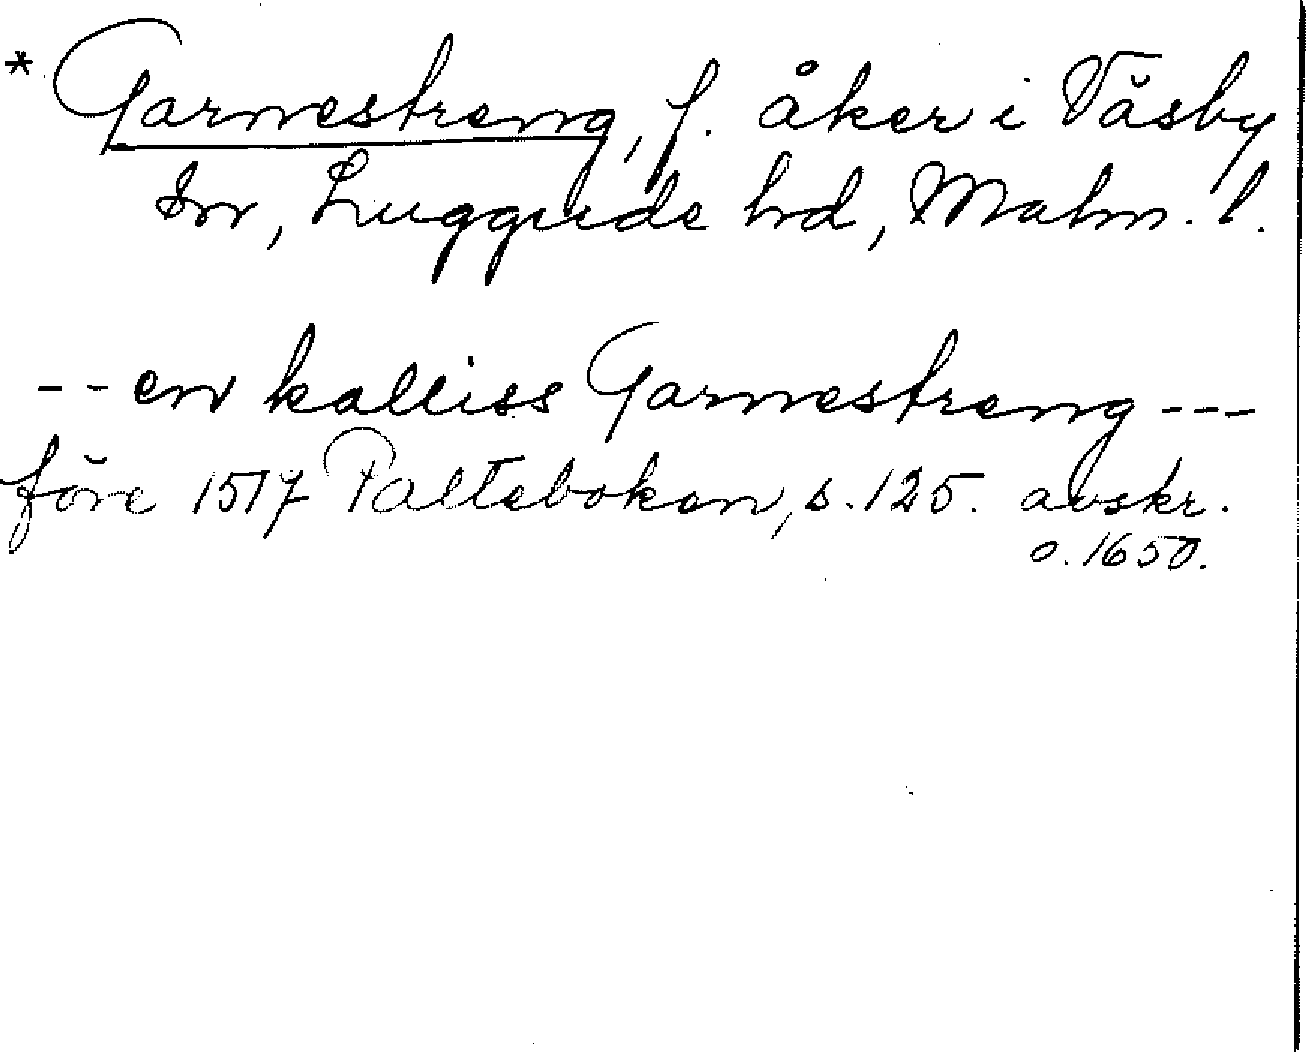 * Garnestreng, f. åker i Väsby
sn, Luggude hd, Malm. l.
-- en kalliss Garnestreng ---
före 1517 Palteboken, s. 125. avskr.
o. 1650.